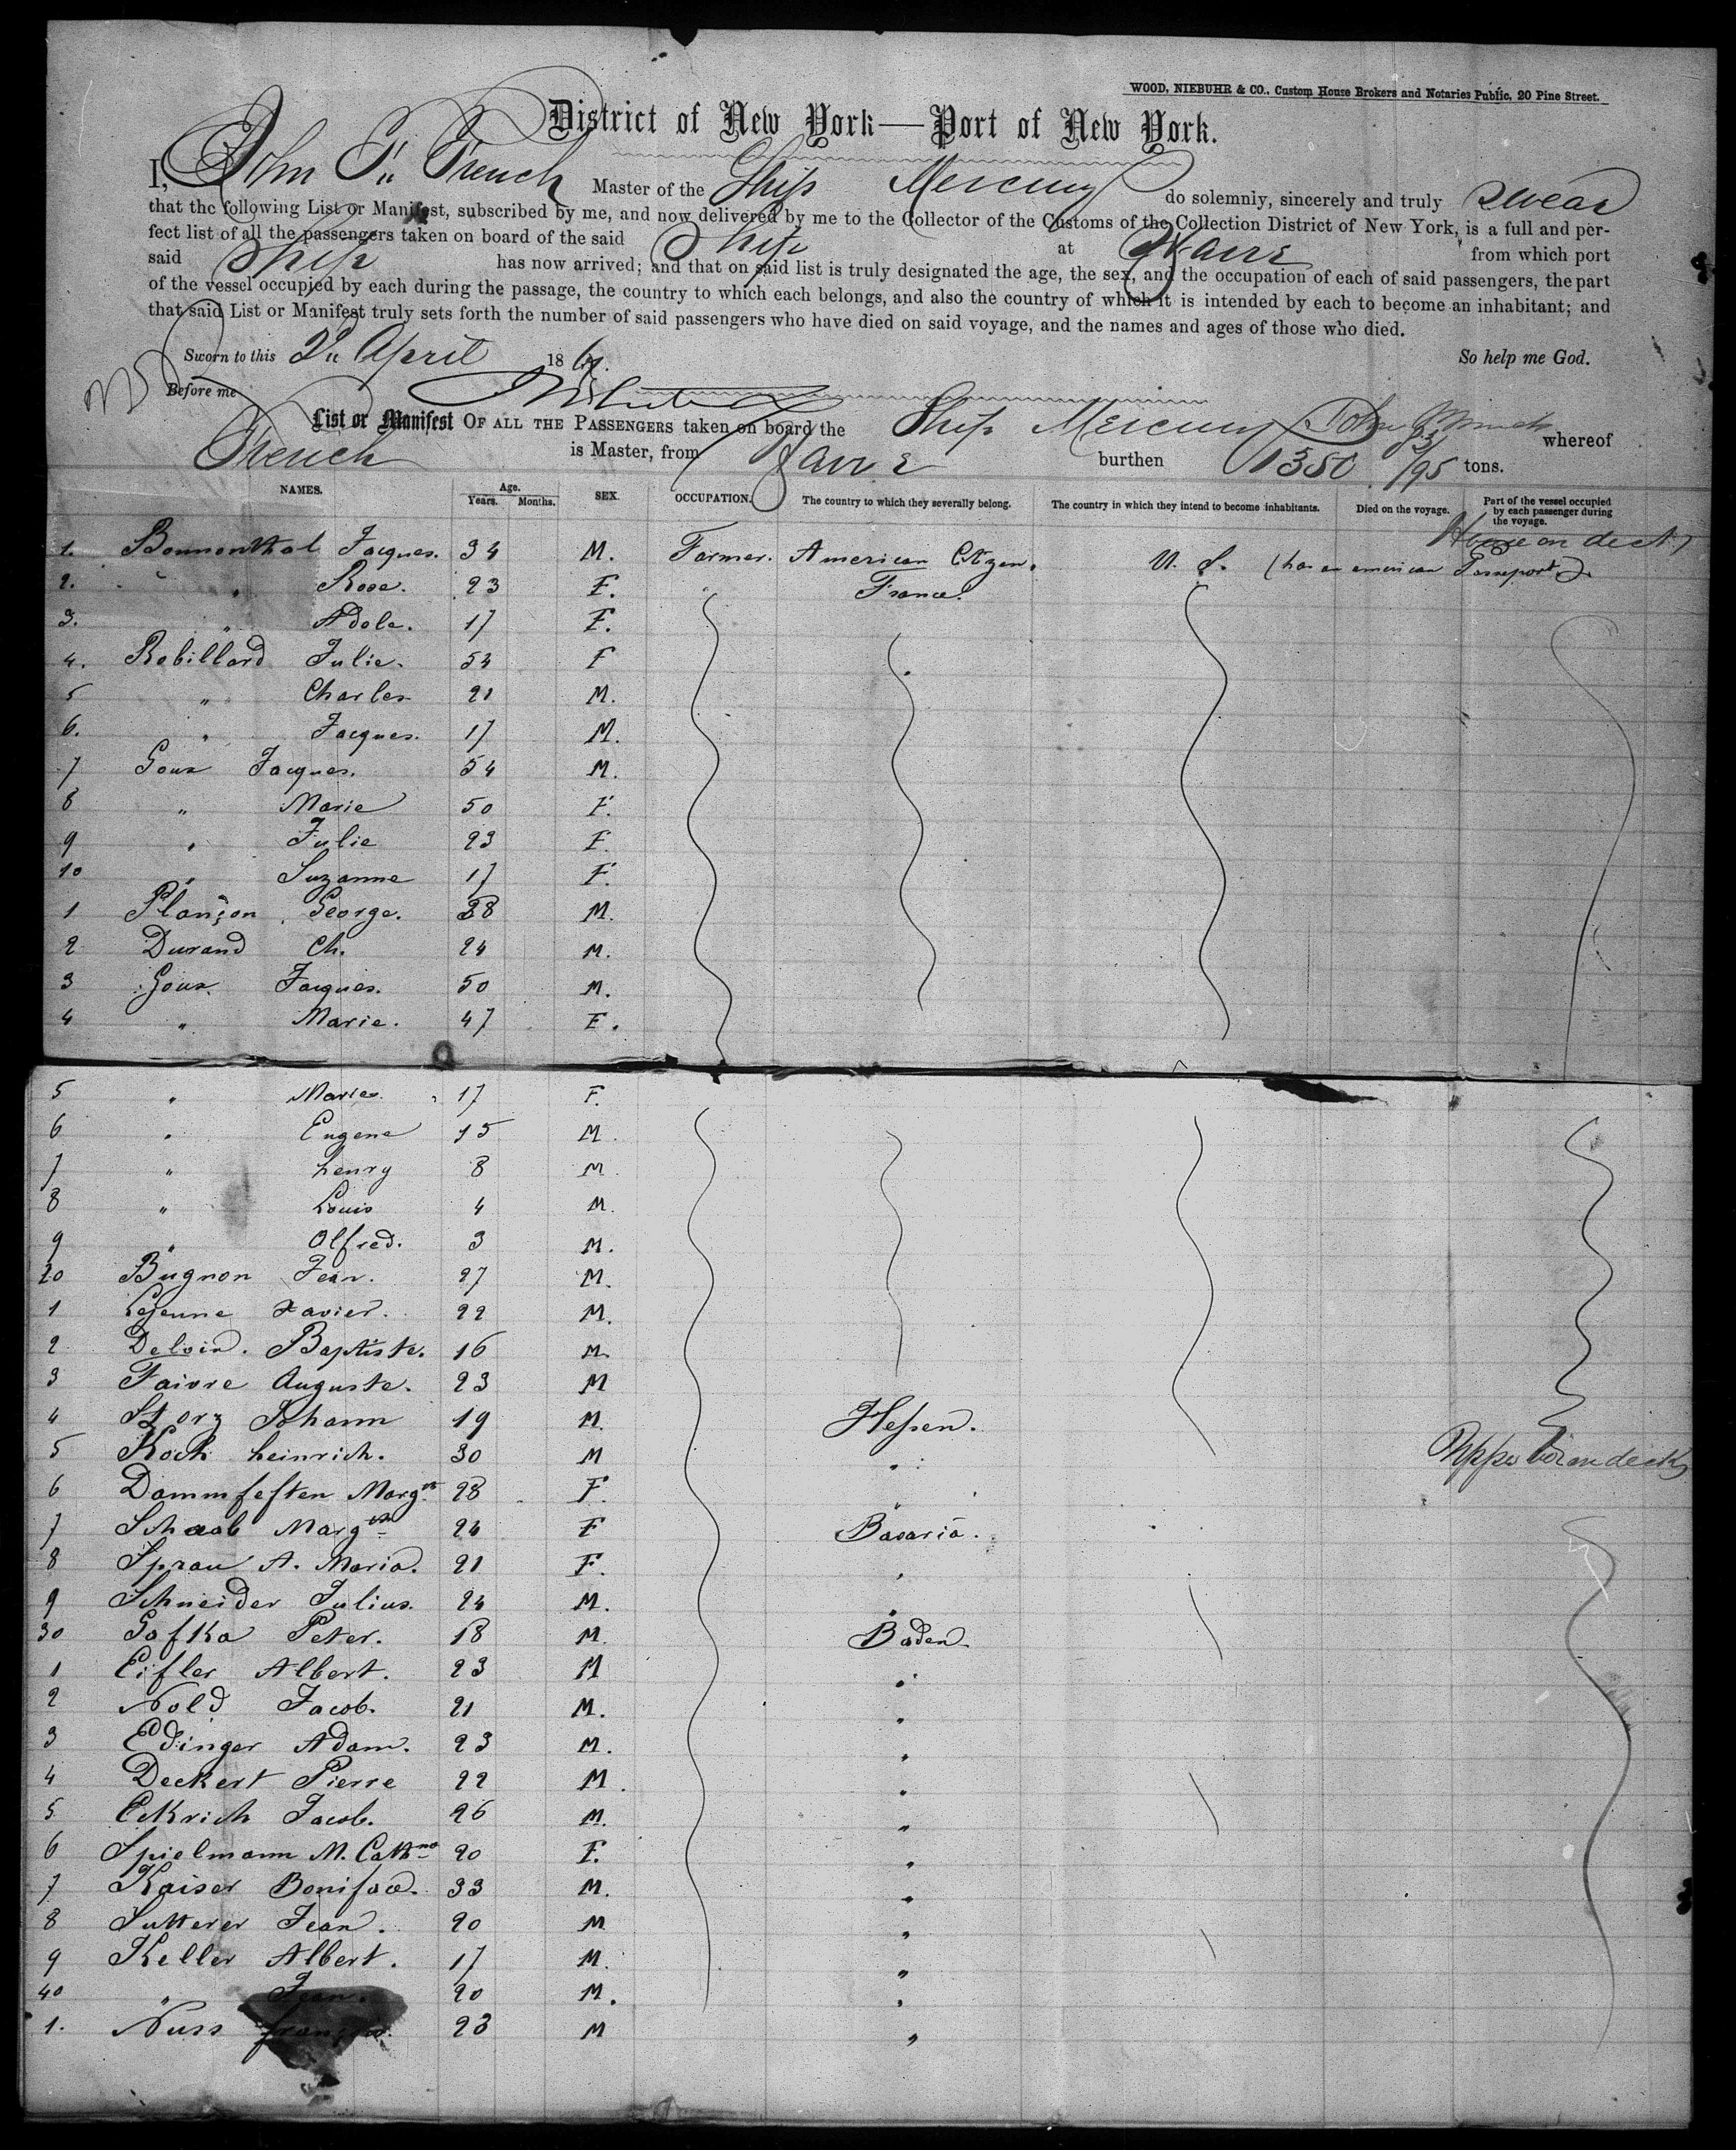 WOOD, NIEBUHR & CO., Custom House Brokers and Notaries Public, 20 Pine Street.
District of New York—Port of New York.
I, John French Master of the Ship Mercury do solemnly, sincerely and truly swear
that the following List or Manifest, subscribed by me, and now delivered by me to the Collector of the Customs of the Collection District of New York, is a full and per-
fect list of all the passengers taken on board of the said Ship at Havre from which port
said Ship has now arrived; and that on said list is truly designated the age, the sex, and the occupation of each of said passengers, the part
of the vessel occupied by each during the passage, the country to which each belongs, and also the country of which it is intended by each to become an inhabitant; and
that said List or Manifest truly sets forth the number of said passengers who have died on said voyage, and the names and ages of those who died.
Sworn to this April 186 So help me God.
Before me
List or Manifest OF ALL THE PASSENGERS taken on board the Ship Mercury John whereof
French is Master, from Havre burthen 1350 /95 tons.
NAMES. Age. Years. Months. SEX. OCCUPATION. The country to which they severally belong. The country in which they intend to become inhabitants. Died on the voyage. Part of the vessel occupied by each passenger during the voyage.
House on deck
1. Bonnonthal Jacques. 34 M. Farmer. American Citizen. U. S. (has an american Passeport).
2. " Rose. 23 F. France.
3. " Adele. 17 F.
4. Robillard Julie. 54 F
5 " Charles 21 M.
6. " Jacques. 17 M.
7 Goux Jacques. 54 M.
8 " Marie 50 F.
9 " Julie 23 F.
10 " Suzanne 17 F.
1 Plançon George. 28 M.
2 Durand Ch. 24 M.
3 Goux Jacques. 50 M.
4 " Marie. 47 F.
5 " Marie 17 F.
6 " Eugene 15 M.
7 " henry 8 M.
8 " Louis 4 M.
9 " Alfred. 3 M.
20 Bugnon Jean. 27 M.
1 Lejeune Xavier. 22 M.
2 Deloin. Baptiste. 16 M.
3 Faivre Auguste. 23 M
4 Storz Johann 19 M. Hessen.
5 Koch heinrich. 30 M " Upper between decks
6 Margth 28 F. "
7 Schaab Margth 24 F Bavaria.
8 Sprau A. Maria. 21 F. "
9 Schneider Julius. 24 M. "
30 Gofka Peter. 18 M. Baden.
1 Eifler Albert. 23 M "
2 Nold Jacob. 21 M. "
3 Edinger Adam. 23 M. "
4 Deckert Pierre 22 M. "
5 Eckrich Jacob. 26 M. "
6 Spielmann M. Cathne 20 F. "
7 Kaiser Bonifac. 33 M. "
8 Sutterer Jean. 20 M "
9 Keller Albert. 17 M. "
40 " Jean. 20 M. "
1. Nuss françois. 23 M "